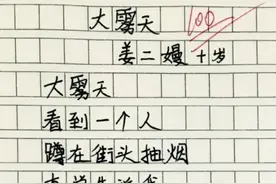 大雾天
100
姜二嫚 十岁
大雾天
看到一个人
蹲在街头抽烟